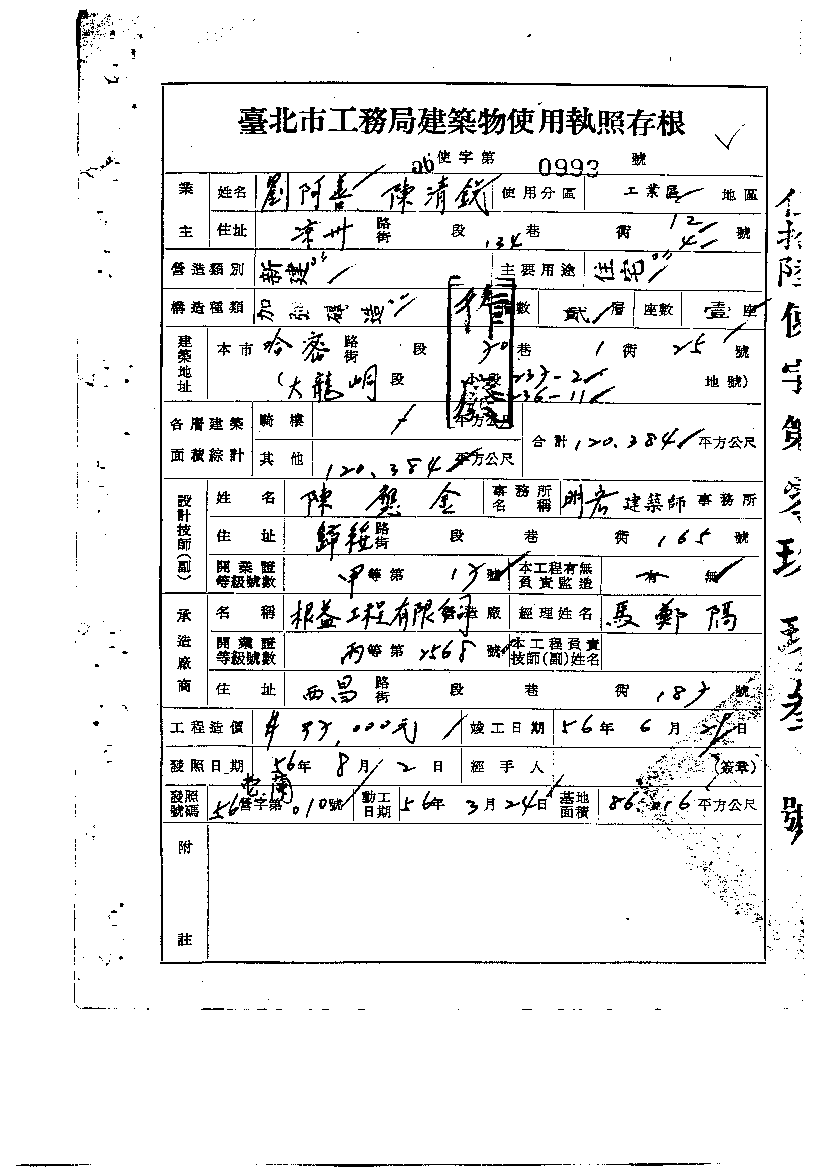 臺北市工務局建築物使用執照存根
56使字第 0993 號
業主 姓名 劉阿善 陳清錢 使用分區 工業區 地區
住址 凉州 路街 段 134 巷 衖 12 4 號
營造類別 新建 主要用途 住宅
構造種類 加強磚造 層數 貳 層 座數 壹 座
建築地址 本市 哈密 路街 段 30 巷 1 衖 25 號
(大龍峒 段 小段 237-2 236-11 地號)
各層建築面積綜計 騎樓 平方公尺
其他 120.384 平方公尺 合計 120.384 平方公尺
設計技師(副) 姓名 陳懋金 事務所名稱 明宏 建築師事務所
住址 路街 段 巷 衖 165 號
開業證等級號數 甲 等第 13 號 本工程有無負責監造 有 無
承造廠商 名稱 根益工程有限公司 營造廠 經理姓名 馬鄭陽
開業證等級號數 丙 等第 2568 號 本工程負責技師(副)姓名
住址 西昌 路街 段 巷 衖 183 號
工程造價 # 93,000元 竣工日期 56 年 6 月 25 日
發照日期 56 年 8 月 2 日 經手人 (簽章)
發照號碼 56 營字第 010 號 動工日期 56 年 3 月 24 日 基地面積 86.016 平方公尺
附註
伍拾陸使字第零玖玖叁號